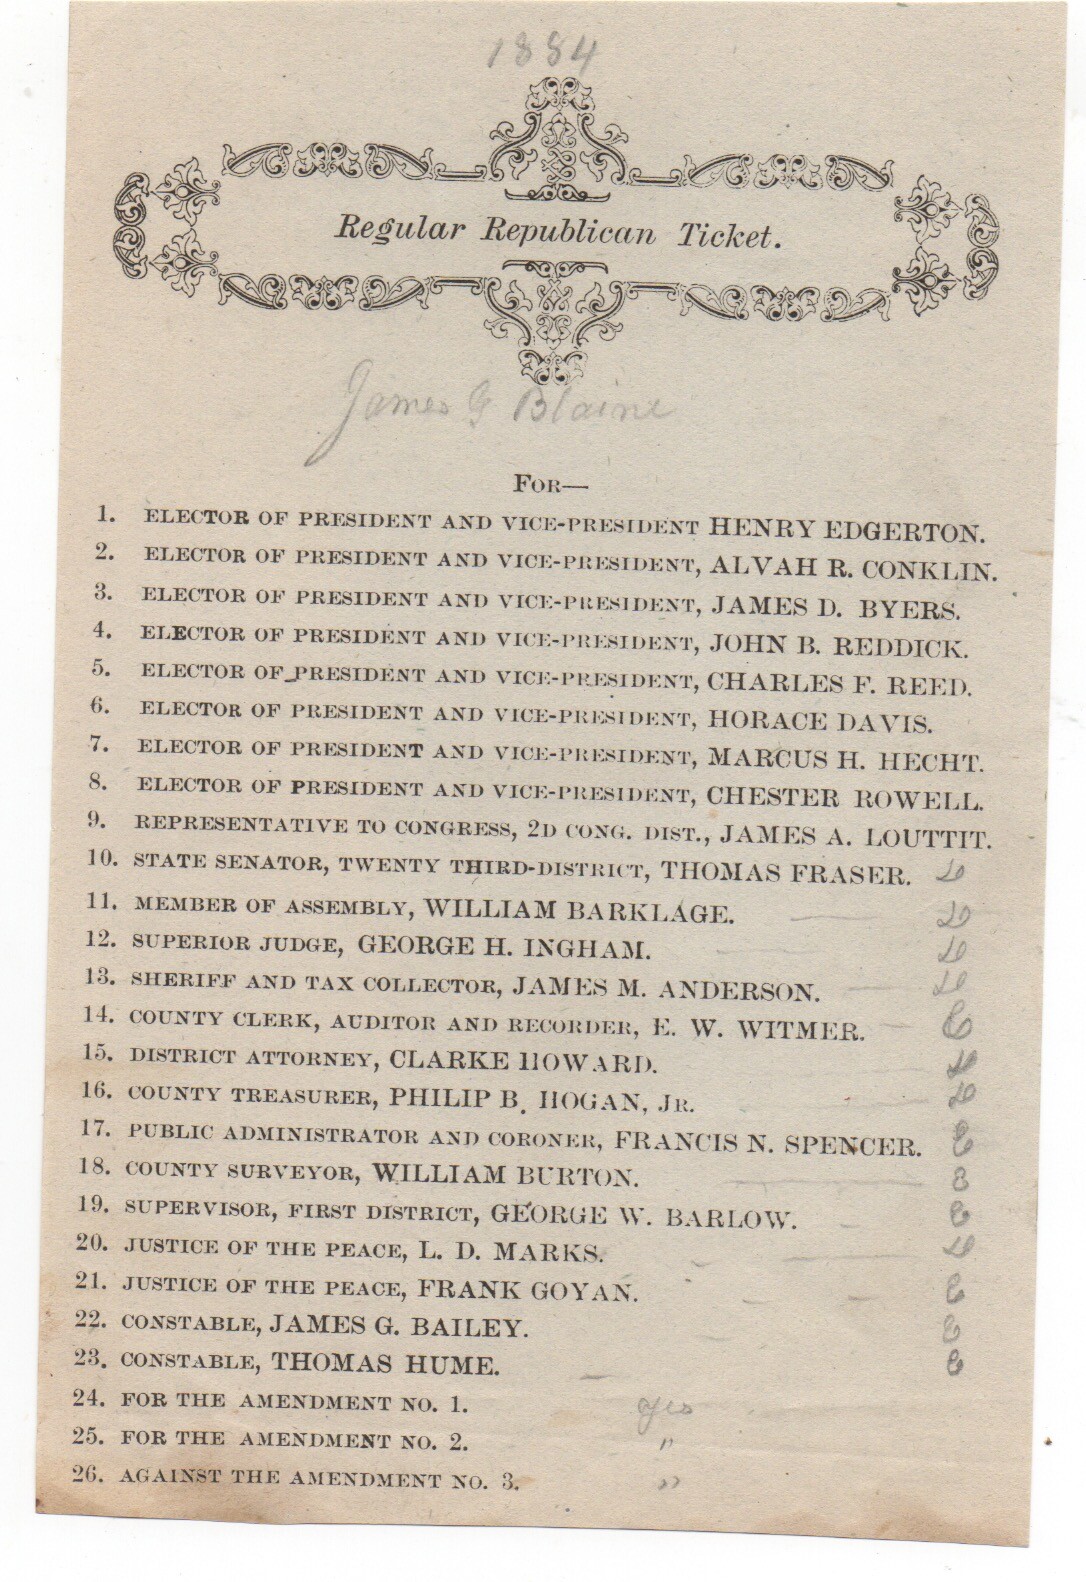 1884
Regular Republican Ticket.
James G Blaine
FOR—
1. ELECTOR OF PRESIDENT AND VICE-PRESIDENT HENRY EDGERTON.
2. ELECTOR OF PRESIDENT AND VICE-PRESIDENT, ALVAH R. CONKLIN.
3. ELECTOR OF PRESIDENT AND VICE-PRESIDENT, JAMES D. BYERS.
4. ELECTOR OF PRESIDENT AND VICE-PRESIDENT, JOHN B. REDDICK.
5. ELECTOR OF PRESIDENT AND VICE-PRESIDENT, CHARLES F. REED.
6. ELECTOR OF PRESIDENT AND VICE-PRESIDENT, HORACE DAVIS.
7. ELECTOR OF PRESIDENT AND VICE-PRESIDENT, MARCUS H. HECHT.
8. ELECTOR OF PRESIDENT AND VICE-PRESIDENT, CHESTER ROWELL.
9. REPRESENTATIVE TO CONGRESS, 2D CONG. DIST., JAMES A. LOUTTIT.
10. STATE SENATOR, TWENTY THIRD-DISTRICT, THOMAS FRASER.
11. MEMBER OF ASSEMBLY, WILLIAM BARKLAGE.
12. SUPERIOR JUDGE, GEORGE H. INGHAM.
13. SHERIFF AND TAX COLLECTOR, JAMES M. ANDERSON.
14. COUNTY CLERK, AUDITOR AND RECORDER, E. W. WITMER.
15. DISTRICT ATTORNEY, CLARKE HOWARD.
16. COUNTY TREASURER, PHILIP B. HOGAN, JR.
17. PUBLIC ADMINISTRATOR AND CORONER, FRANCIS N. SPENCER.
18. COUNTY SURVEYOR, WILLIAM BURTON.
19. SUPERVISOR, FIRST DISTRICT, GEORGE W. BARLOW.
20. JUSTICE OF THE PEACE, L. D. MARKS.
21. JUSTICE OF THE PEACE, FRANK GOYAN.
22. CONSTABLE, JAMES G. BAILEY.
23. CONSTABLE, THOMAS HUME.
24. FOR THE AMENDMENT NO. 1. yes
25. FOR THE AMENDMENT NO. 2. "
26. AGAINST THE AMENDMENT NO. 3. "